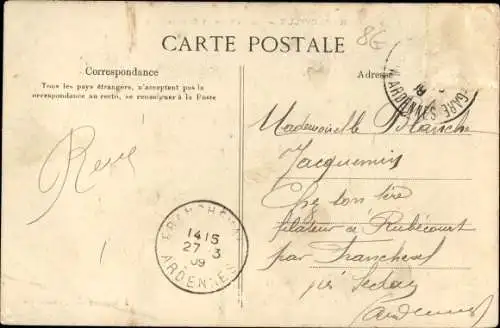 8G
CARTE POSTALE
Correspondance
Tous les pays étrangers, n'acceptent pas la
correspondance au recto, se renseigner à la Poste
Adres
GARE
ARDENNES
Mademoiselle Blanche
Jacquemin
René
FRANCHEVAL
14 15
27 3
09
ARDENNES
à Rubécourt
par Francheval
près Sedan
(Ardennes)